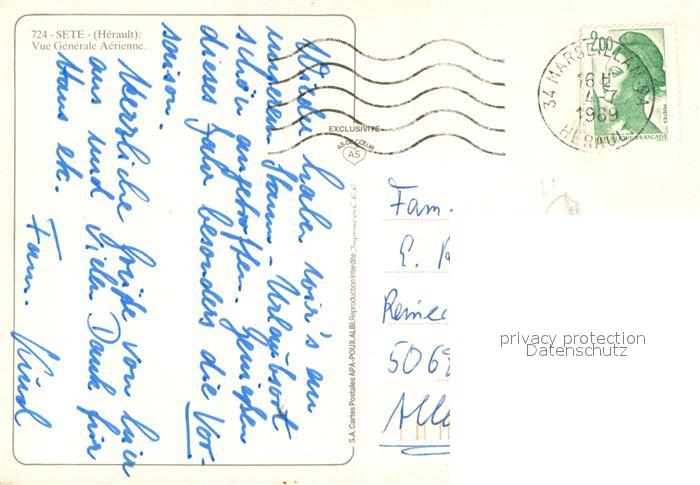 724 - SETE - (Hérault):
Vue Générale Aérienne.
Wieder haben wir's an
unserem Stamm-Urlaubsort
schön angetroffen. Genießen
dieses Jahr besonders die Vor-
saison.
Herzliche Grüße von hier
aus und vielen Dank für
Haus etc.
Fam.
EXCLUSIVITÉ
AS DE CŒUR
AS
S.A. Cartes Postales APA-POUX, ALBI. Reproduction Interdite Imprimé en C.E.E.
2,00
POSTES
34 MARSEILLAN
16 H
4-7
1989
HERAULT
Fam.
E.
5069
privacy protection
Datenschutz